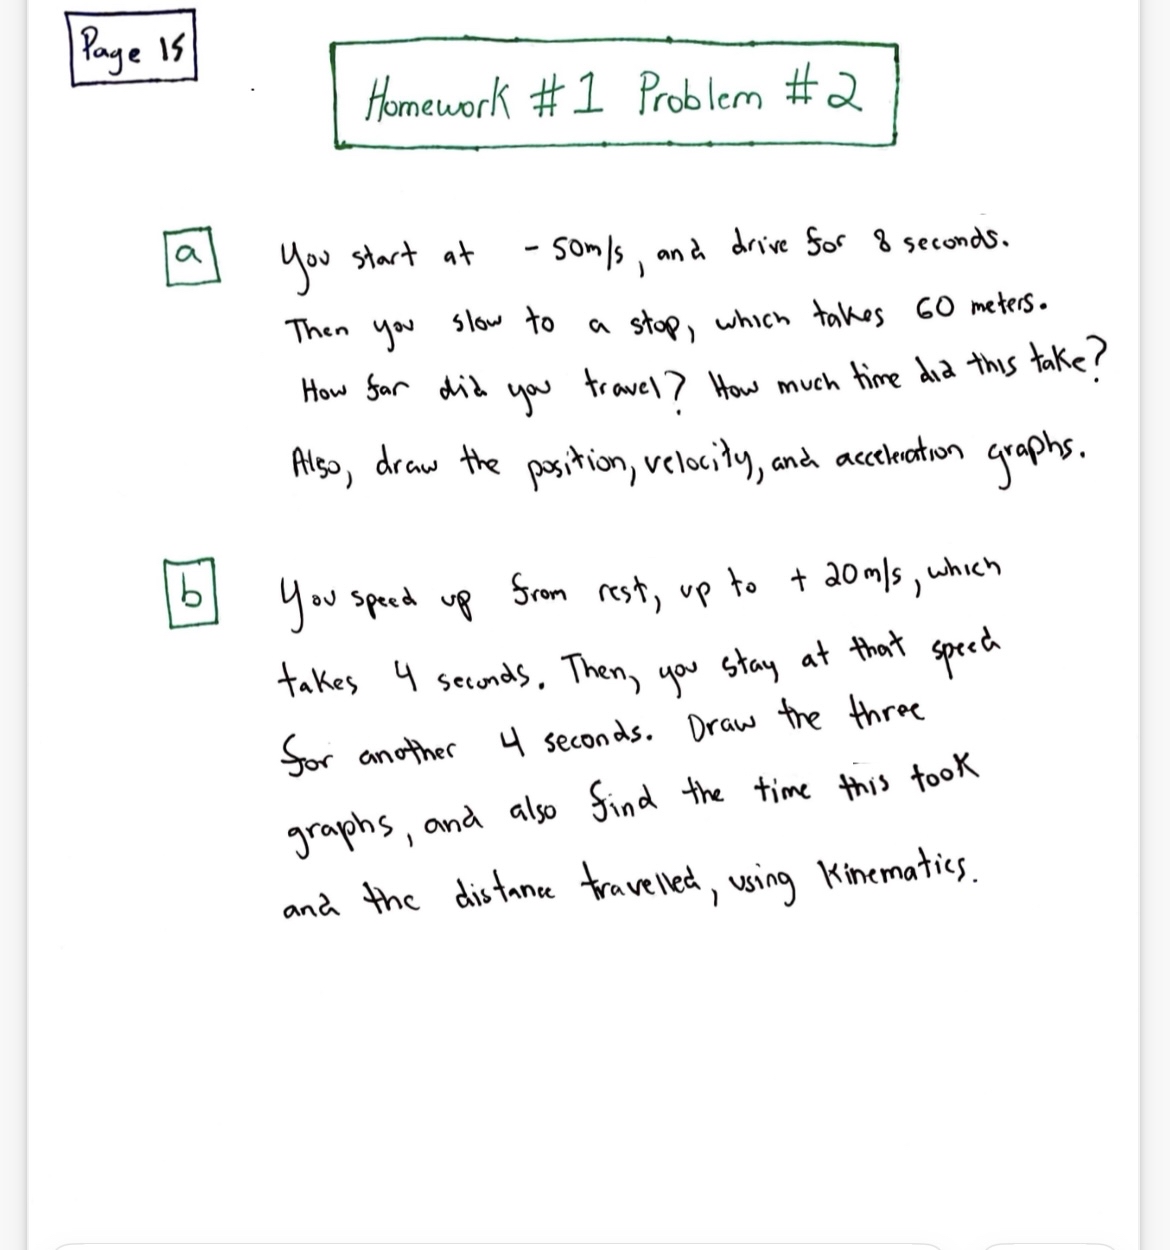 Page 15
Homework #1 Problem #2
a
You start at - 50m/s, and drive for 8 seconds.
Then you slow to a stop, which takes 60 meters.
How far did you travel? How much time did this take?
Also, draw the position, velocity, and acceleration graphs.
b
You speed up from rest, up to + 20m/s, which
takes 4 seconds. Then, you stay at that speed
for another 4 seconds. Draw the three
graphs, and also find the time this took
and the distance travelled, using Kinematics.